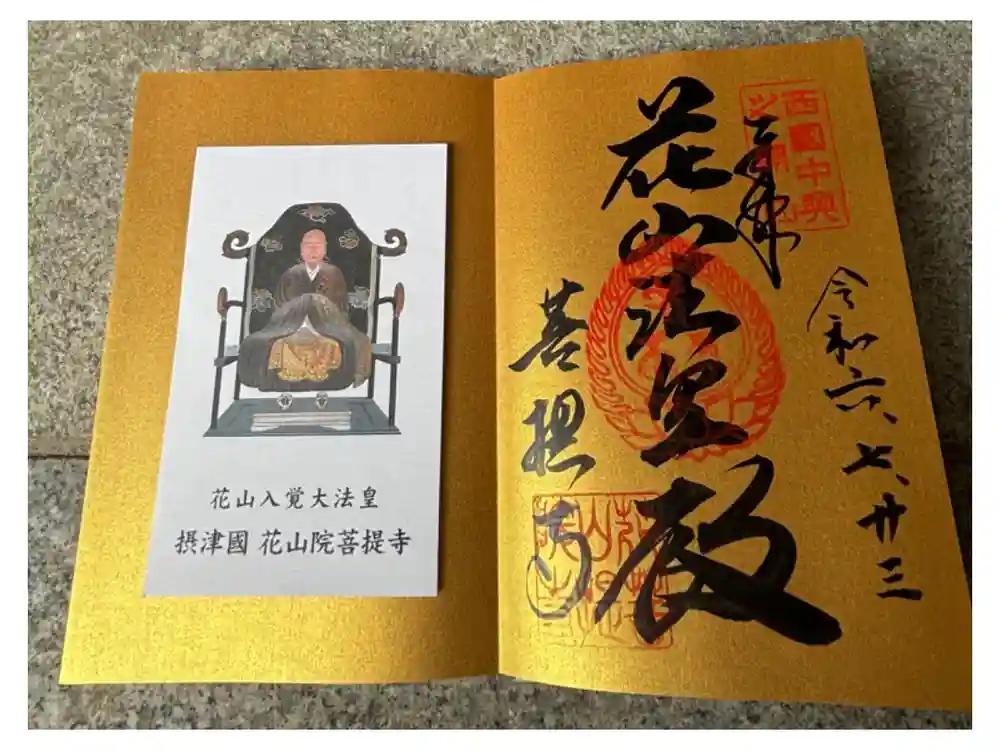 花山入覚大法皇
摂津國 花山院菩提寺
西國中興
奉拝
花山法皇殿
菩提寺
令和六、七、廿三